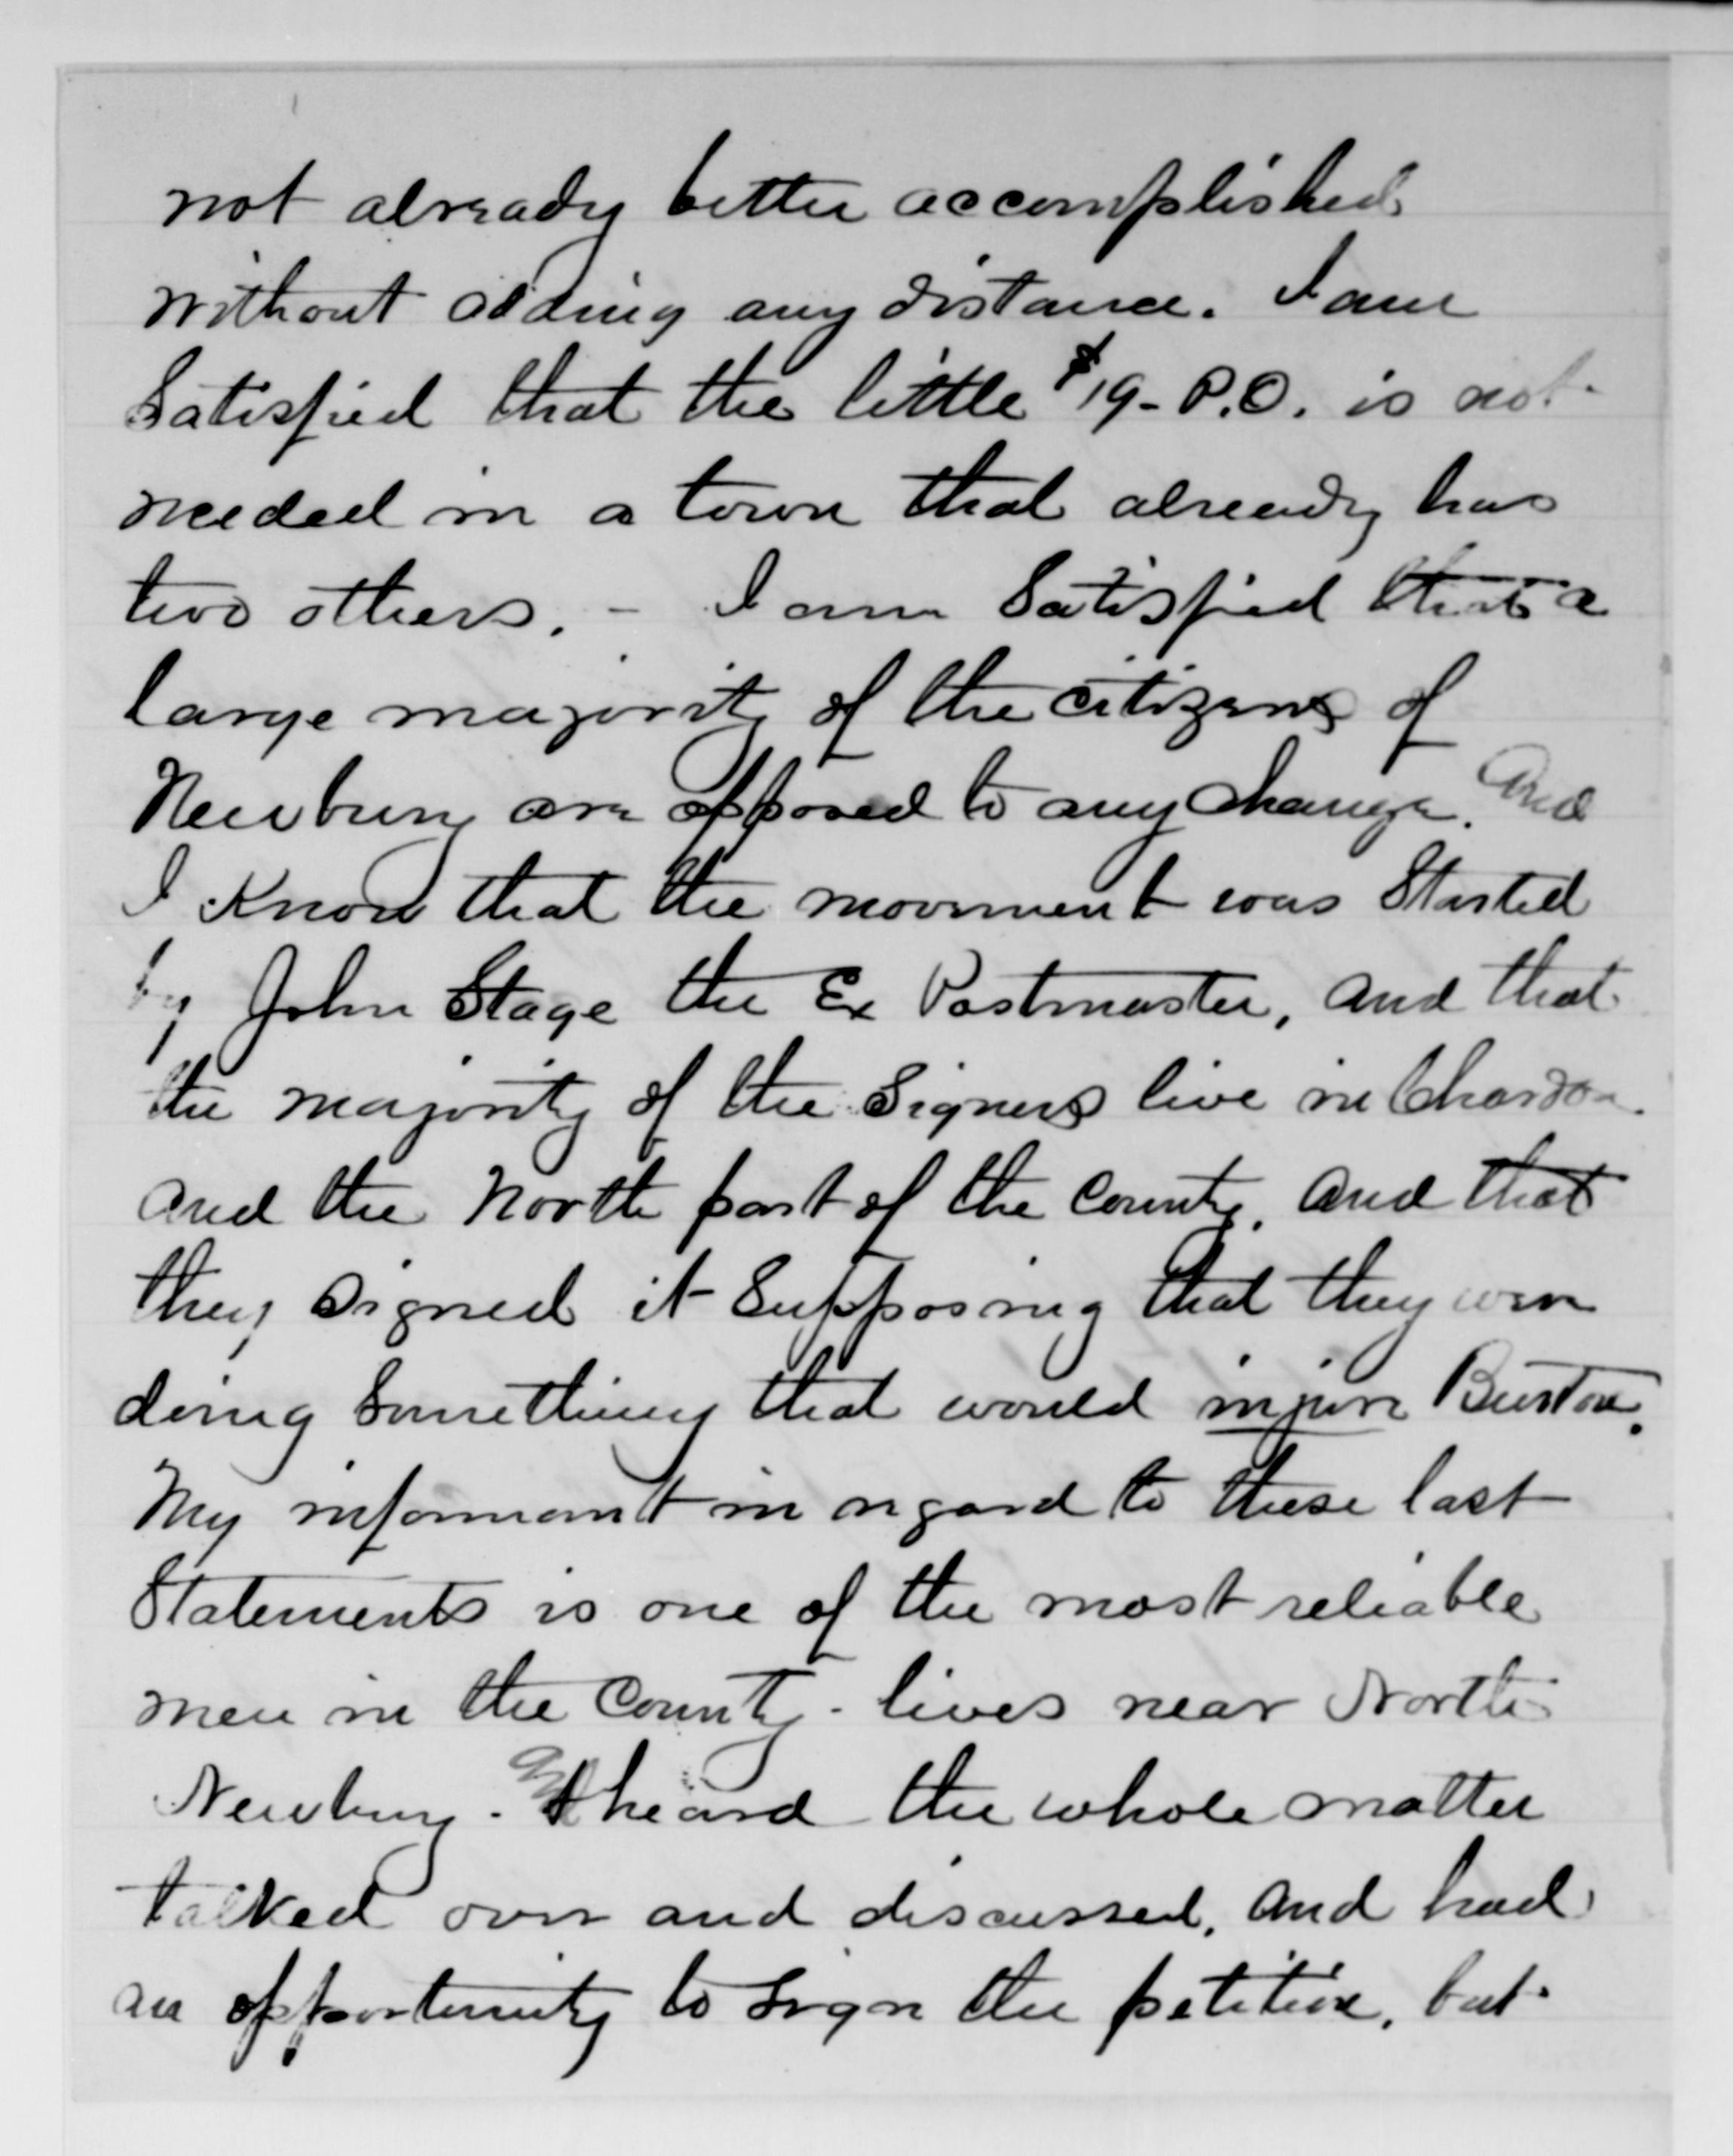 not already better accomplished
without adding any distance. I am
Satisfied that the little $19- P.O. is not
needed in a town that already has
two others. - I am Satisfied that a
large majority of the citizens of
Newbury are opposed to any change. And
I Know that the movement was Started
by John Stage the Ex Postmaster, and that
the majority of the Signers live in Chardon.
and the North part of the County. and that
they Signed it Supposing that they were
doing Something that would injure Burton.
My informant in regard to these last
Statements is one of the most reliable
men in the County - lives near North
Newbury. heard the whole matter
talked over and discussed, and had
an opportunity to Sign the petition, but